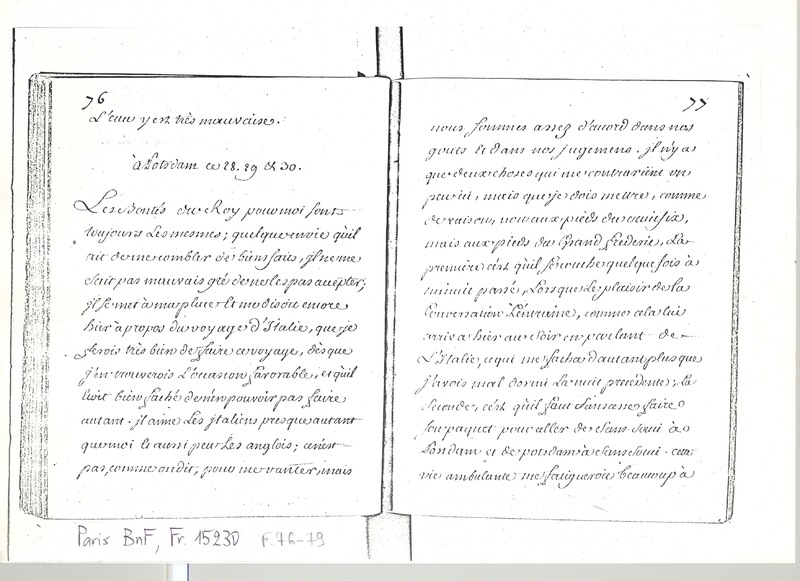 76
L'eau y est très mauvaise.
à Potsdam ce 28. 29 et 30.
Les Bontés du Roy pour moi sont
toujours Les mesmes; quelque envie qu'il
ait de me combler de bienfaits, jl ne me
scait pas mauvais gré de ne les pas accepter;
jl se met à ma place et me disoit encore
hier à propos du voyage d'Italie, que je
ferois très bien de faire ce voyage, dès que
j'en trouverois L'occasion favorable, et qu'il
étoit bien faché de n'en pouvoir pas faire
autant. jl aime Les jtaliens presque autant
que moi et aussi peu Les anglois; ce n'est
pas, comme on dit, pour me vanter, mais
77
nous sommes assez d'acord dans nos
gouts et dans nos jugemens. jl n'y a
que deux choses qui me contrarient un
peu ici, mais que je dois mettre, comme
de raison, non aux pieds du crucifix,
mais aux pieds du Grand frederic, La
premiere c'est qu'il se couche quelque fois à
minuit passé, Lorsque Le plaisir de la
Conversation L'entraine, comme cela lui
arriva hier au Soir en parlant de
L'Italie, ce qui me facha d'autant plus que
j'avois mal dormi La nuit precedente; La
Seconde, c'est qu'il faut sans cesse faire
son paquet pour aller de Sans Souci à
Potsdam et de potsdam à Sans Souci. cette
vie ambulante me fatigueroit beaucoup à
Paris BnF, Fr. 15230 F. 76-79